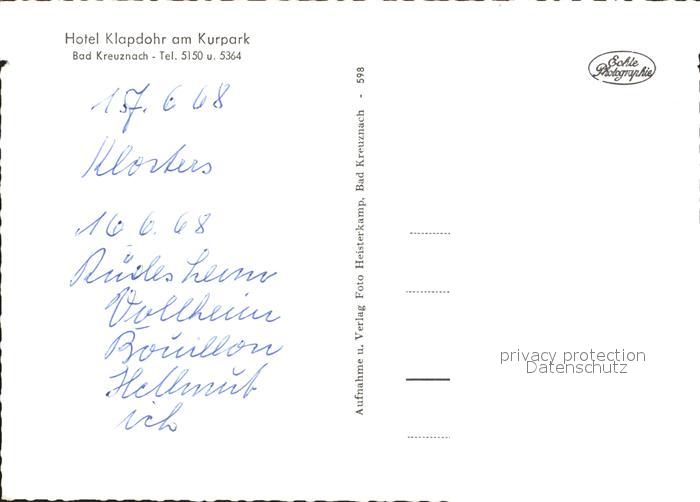 Hotel Klapdohr am Kurpark
Bad Kreuznach - Tel. 5150 u. 5364
Echte
Photographie
15. 6 68
Klosters
16 6. 68
Rüdesheim
Vollheim
Bouillon
Hellmut
ich
Aufnahme u. Verlag Foto Heisterkamp, Bad Kreuznach - 598
privacy protection
Datenschutz